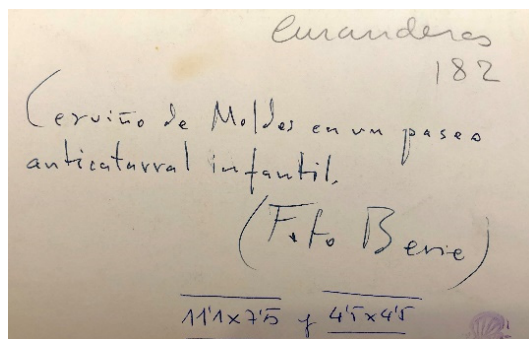 Curanderas
182
Cerviño de Moldes en un paseo
anticatarral infantil.
(Foto Bene)
11'1 x 7'5 y 4'5 x 4'5